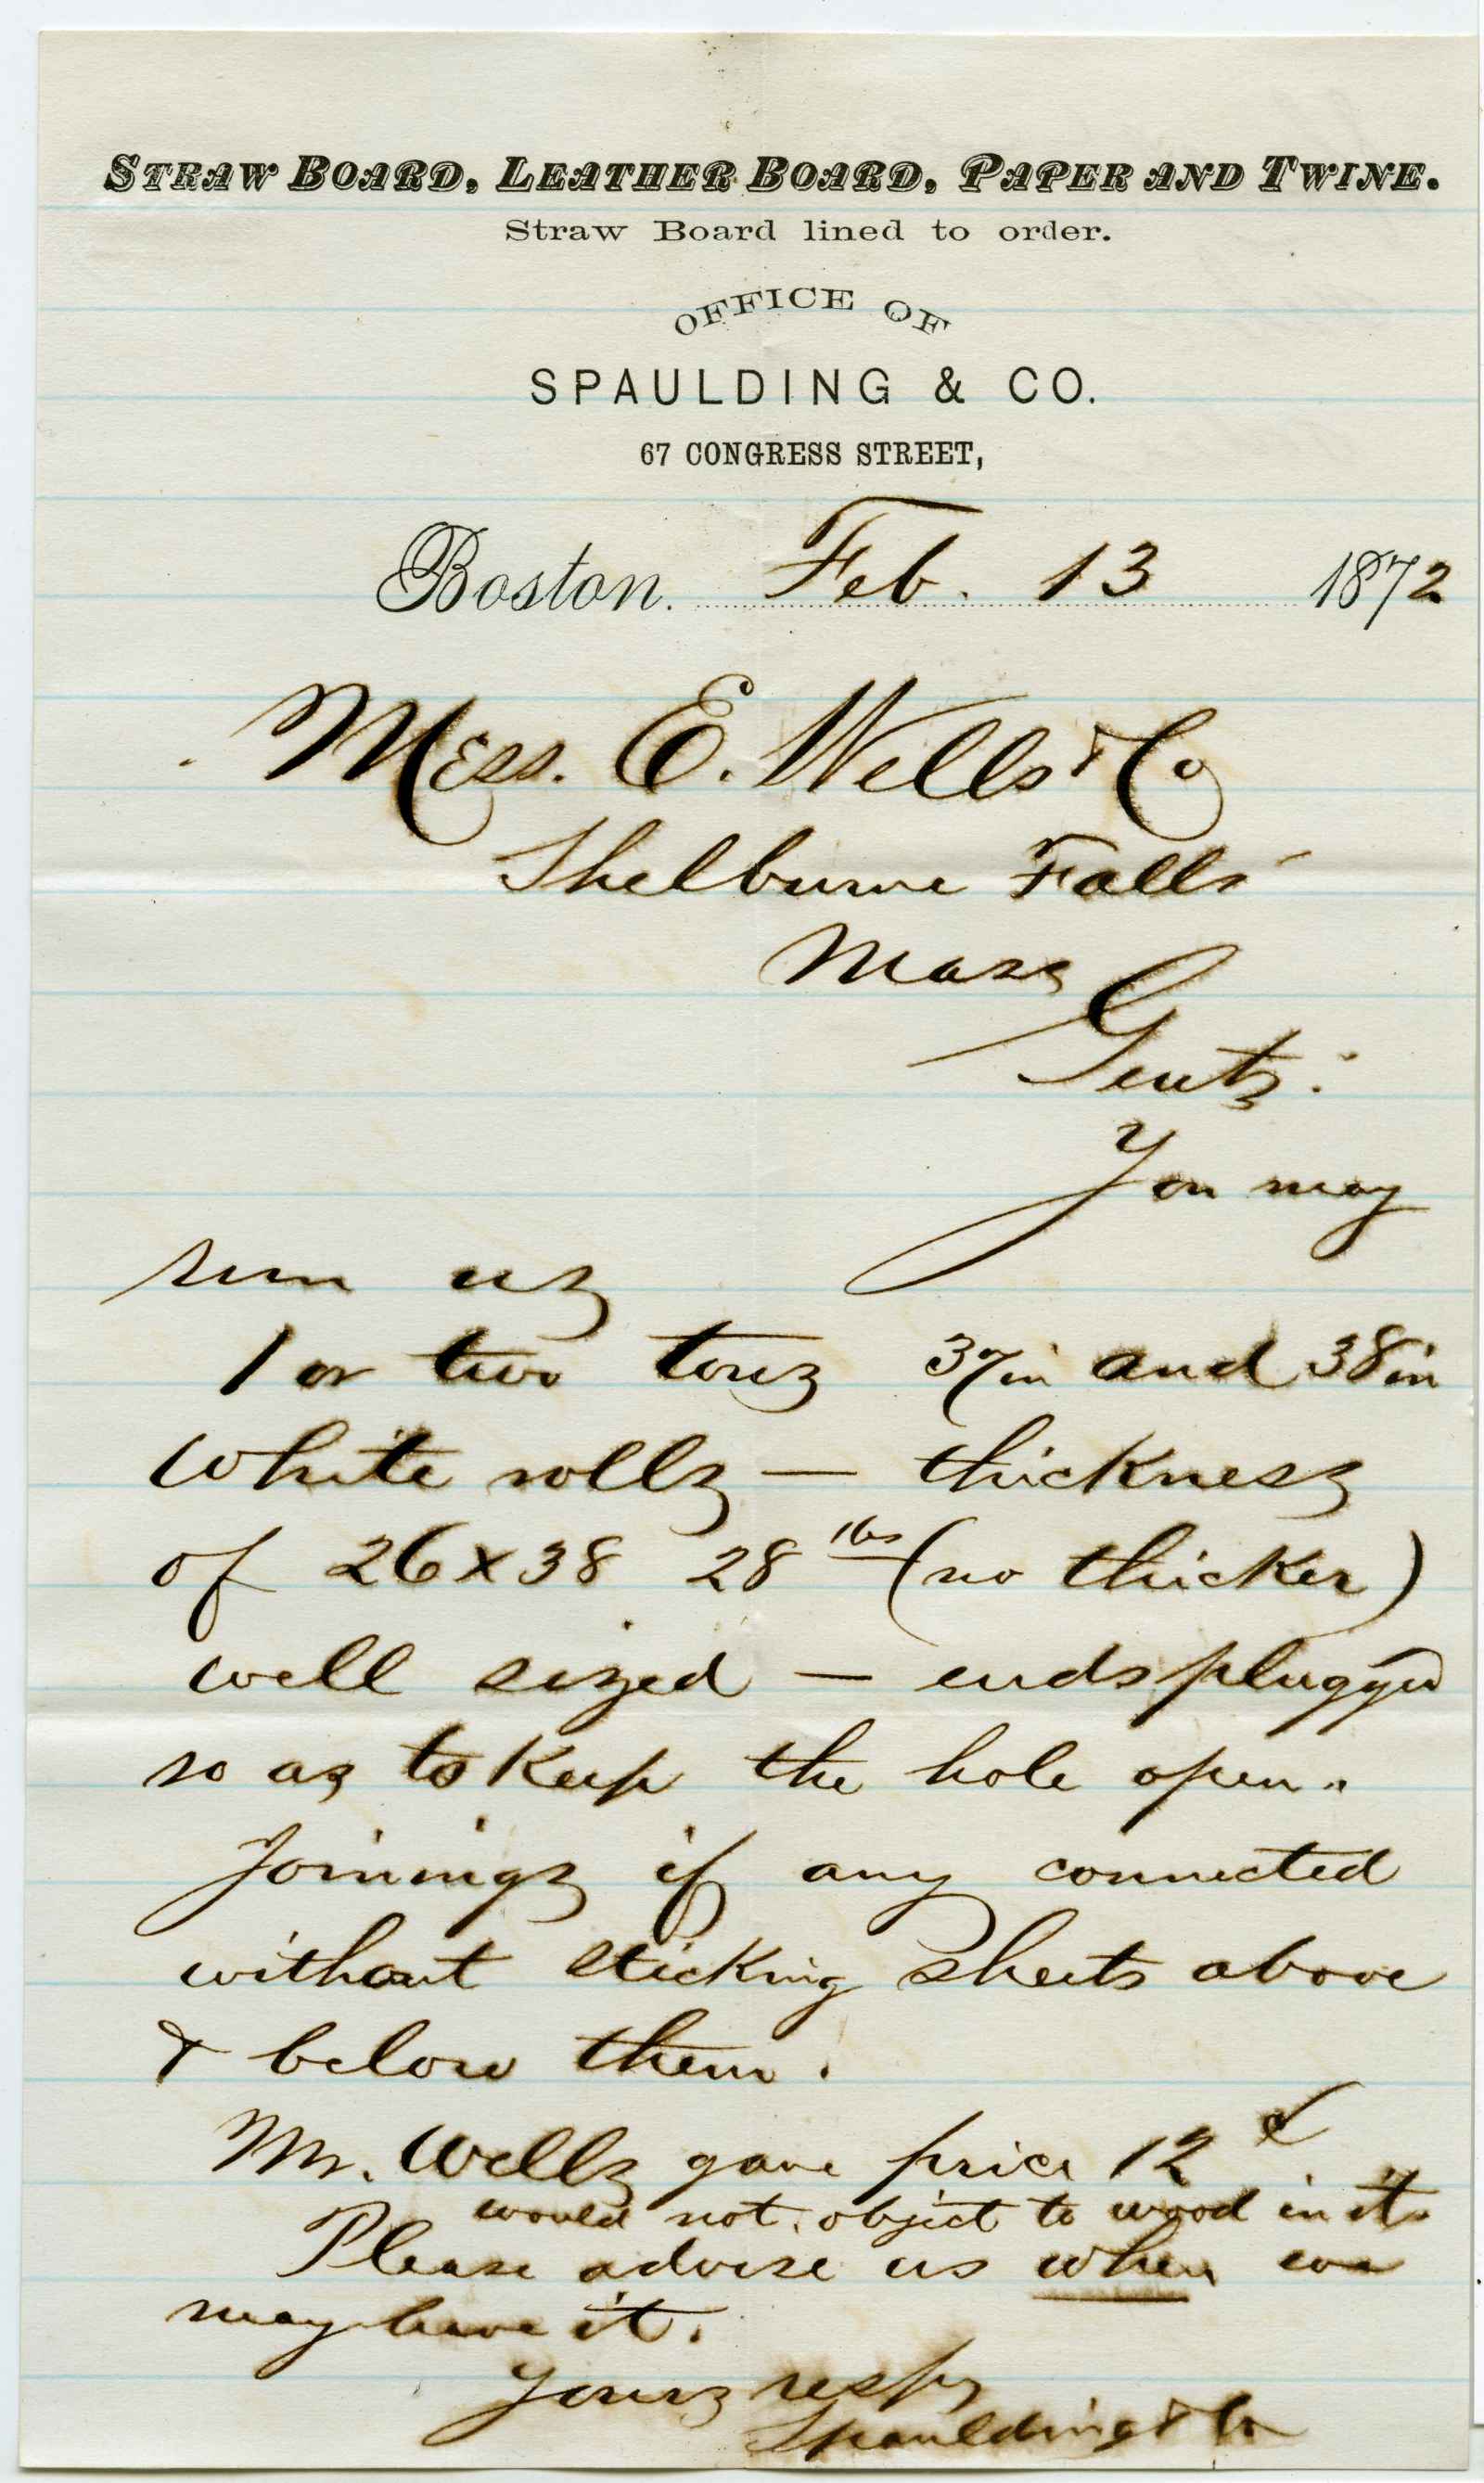 STRAW BOARD, LEATHER BOARD, PAPER AND TWINE.
Straw Board lined to order.
OFFICE OF
SPAULDING & CO.
67 CONGRESS STREET,
Boston. Feb. 13 1872
Mess. E. Wells & Co
Shelburne Falls
Mass
Gents:
You may
run us
1 or two tons 37in and 38in
White rolls — thickness
of 26x38 28 lbs (no thicker)
well sized — ends plugged
so as to Keep the hole open.
Joinings if any connected
without sticking sheets above
& below them.
Mr. Wells gave price 12 ¢
would not object to wood in it.
Please advise us when we
may have it.
Yours respy
Spaulding & Co